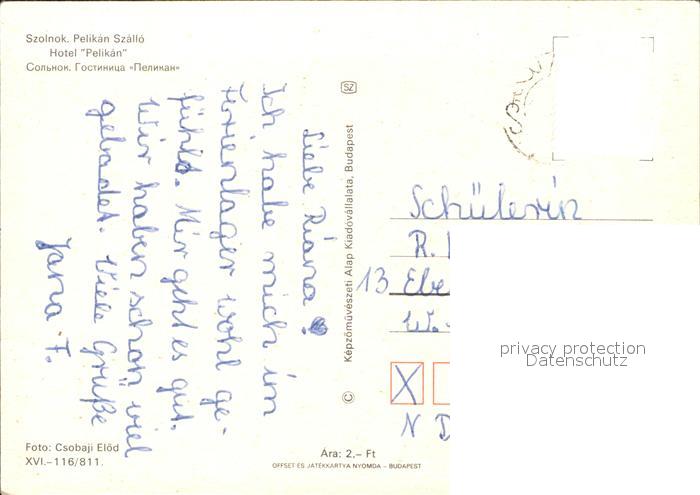 Szolnok. Pelikán Szálló
Hotel "Pelikán"
Сольнок. Гостиница «Пеликан»
Liebe Riana!
Ich habe mich im
Ferienlager wohl ge-
fühlt. Mir geht es gut.
Wir haben schon viel
gebadet. Viele Grüße
Jana F.
Foto: Csobaji Előd
XVI.–116/811.
SZ
© Képzőművészeti Alap Kiadóvállalata, Budapest
Ára: 2,– Ft
OFFSET ÉS JÁTÉKKÁRTYA NYOMDA – BUDAPEST
Schülerin
R.
13 Ebe
W.-
X
N
privacy protection
Datenschutz